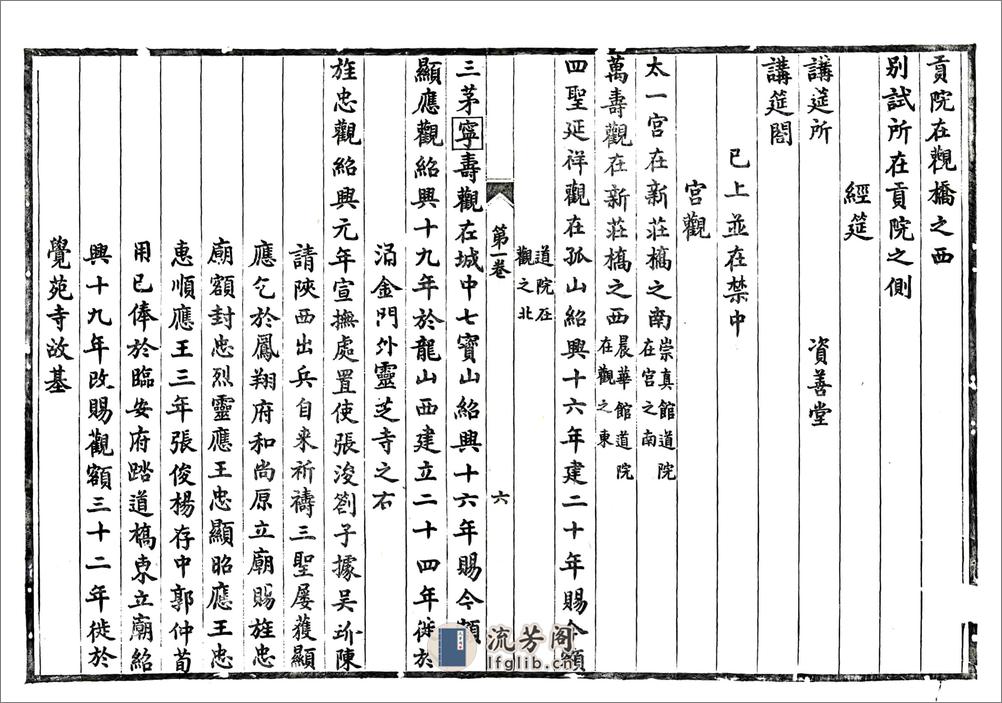 貢院在觀橋之西
別試所在貢院之側
經筵
講筵所 資善堂
講筵閣
已上並在禁中
宮觀
太一宮在新莊橋之南崇真館道院在宮之南
萬壽觀在新莊橋之西晨華館道院在觀之東
四聖延祥觀在孤山紹興十六年建二十年賜今額
道院在觀之北
第一卷 六
三茅寧壽觀在城中七寶山紹興十六年賜今額
顯應觀紹興十九年於龍山西建立二十四年徙於
湧金門外靈芝寺之右
旌忠觀紹興元年宣撫處置使張浚劄子據吳玠陳
請陝西出兵自來祈禱三聖屢獲顯
應乞於鳳翔府和尚原立廟賜旌忠
廟額封忠烈靈應王忠顯昭應王忠
惠順應王三年張俊楊存中郭仲荀
用己俸於臨安府踏道橋東立廟紹
興十九年改賜觀額三十二年徙於
覺苑寺故基
流芳阁
lfglib.cn